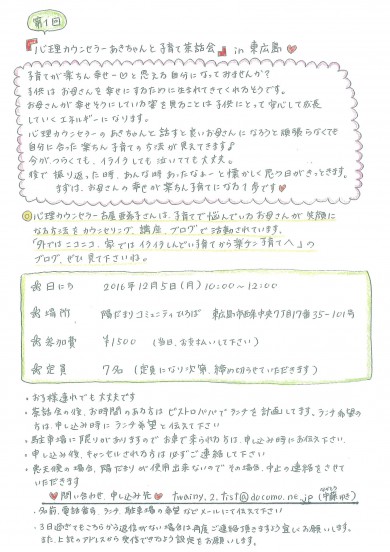 第1回
『心理カウンセラーあきちゃんと子育て茶話会』 in 東広島
子育てが楽ちん幸せー♡と思える自分になってみませんか?
子供はお母さんを幸せにするために生まれてきてくれるそうです。
お母さんが幸せそうにしている姿を見ることは子供にとって安心して成長
していくエネルギーになります。
心理カウンセラーのあきちゃんと話すと良いお母さんになろうと頑張らなくても
自分に合った楽ちん子育ての方法が見えてきます♪
今がつらくても、イライラしても泣いてても大丈夫。
後で振り返った時、あんな時あったなぁーと懐かしく思う日がきっときます。
まずは、お母さんの幸せが楽ちん子育てになる1歩です♡
◎心理カウンセラー 亜季子さんは、子育てで悩んでいるお母さんが笑顔に
なる方法をカウンセリング、講座、ブログで活動されています。
「外ではニコニコ、家ではイライラしんどい子育てから楽チン子育てへ」の
ブログ、ぜひ見て下さいね。
日にち 2016年12月5日(月) 10:00~12:00
場所 陽だまりコミュニティひろば 東広島市西条中央7丁目17番35-101号
参加費 ¥1500 (当日、お支払いして下さい)
定員 7名 (定員になり次第、締め切らせていただきます)
・お子様連れでも大丈夫です
・茶話会の後、お時間のある方はビストロパパでランチを計画してます。ランチ希望の
方は、申し込み時にランチ希望と伝えて下さい
・駐車場に限りがありますのでお車で来られる方は、申し込み時にお伝え下さい。
・申し込み後、キャンセルされる方は必ずご連絡して下さい
・悪天候の場合、陽だまりが使用出来ないのでその場合、中止の連絡をさせて
いただきます
♥問い合わせ、申し込み先♥ twainy.2.tist@docomo.ne.jp (中藤 ゆき)
・名前、電話番号、ランチ、駐車場の希望などメールにて伝えて下さい
・3日過ぎてもこちらから返信がない場合は再度ご連絡頂きますよう宜しくお願いします。
また、上記のアドレスから受信できるよう設定をお願いします。